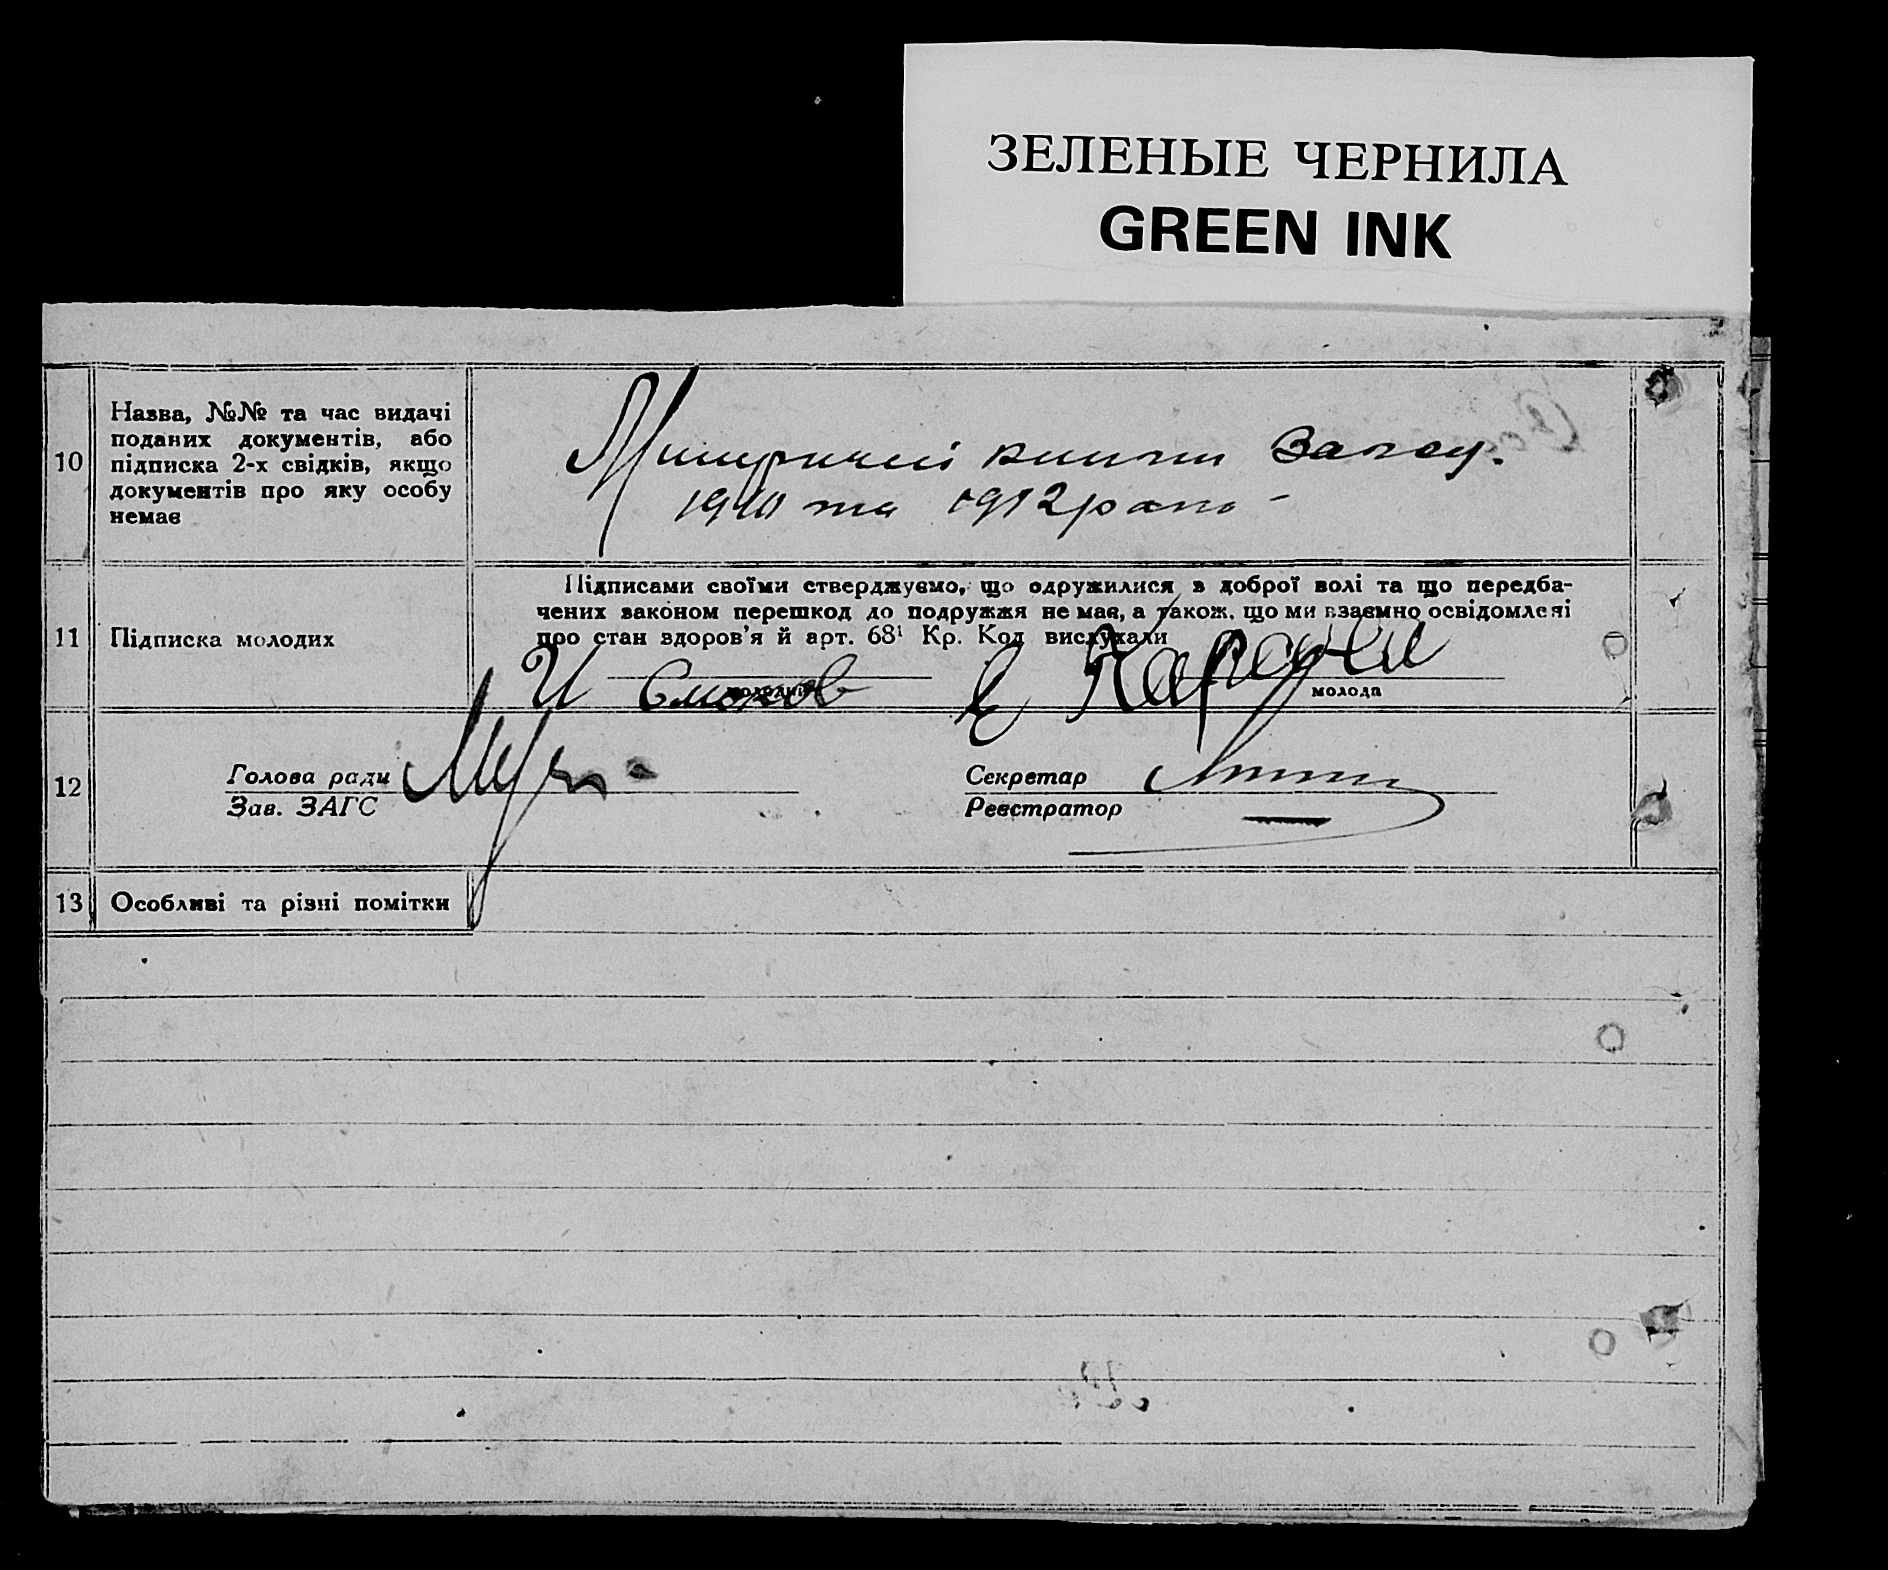 ЗЕЛЕНЫЕ ЧЕРНИЛА
GREEN INK
10
Назва, №№ та час видачі
поданих документів, або
підписка 2-х свідків, якщо
документів про яку особу
немає
Метричні книги Загсу.
та 1912 
11
Підписка молодих
Підписами своїми стверджуємо, що одружилися з доброї волі та що передба-
чених законом перешкод до подружжя не має, а також, що ми взаємно освідомлені
про стан здоров'я й арт. 68¹ Кр. Код вислухали
молодий
молода
12
Голова ради
Зав. ЗАГС
Секретар
Реєстратор
13
Особливі та різні помітки